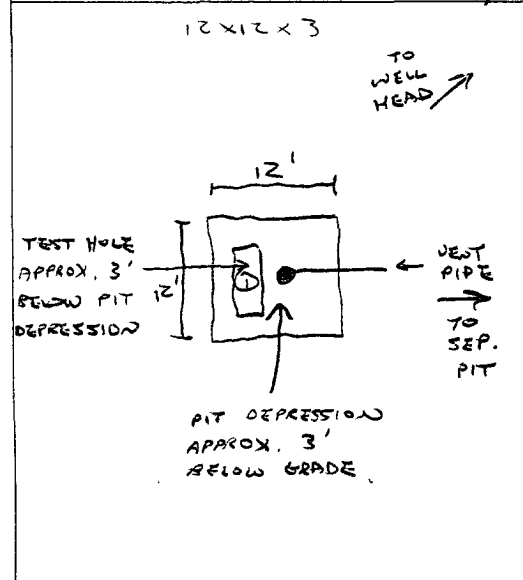 12 x 12 x 3
TO
WELL
HEAD
12'
TEST HOLE
APPROX. 3'
BELOW PIT
DEPRESSION
12'
1
VENT
PIPE
TO
SEP.
PIT
PIT DEPRESSION
APPROX. 3'
BELOW GRADE.